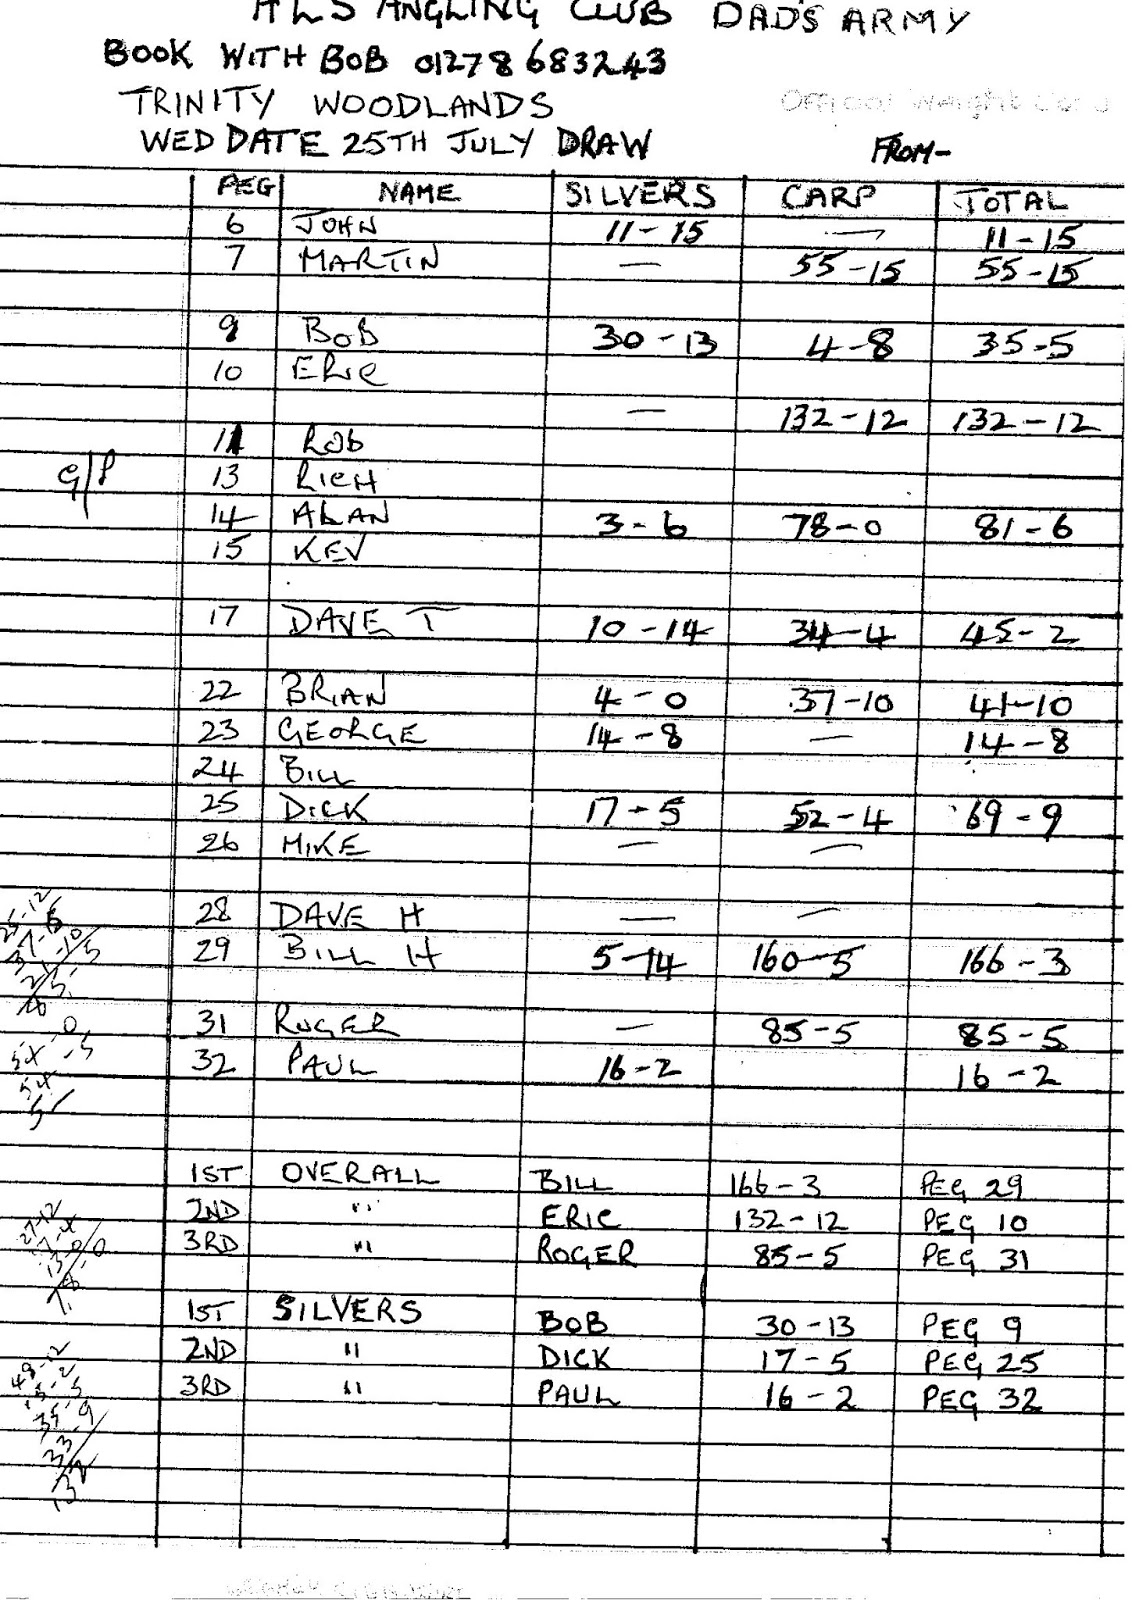 HLS ANGLING CLUB DAD'S ARMY
BOOK WITH BOB 01278 683243
TRINITY WOODLANDS Official Weight
WED DATE 25TH JULY DRAW FROM-
PEG NAME SILVERS CARP TOTAL
6 JOHN 11-15 — 11-15
7 MARTIN — 55-15 55-15
9 BOB 30-13 4-8 35-5
10 ERIC
— 132-12 132-12
11 ROB
G/P 13 RICH
14 ALAN 3-6 78-0 81-6
15 KEV
17 DAVE T 10-14 34-4 45-2
22 BRIAN 4-0 37-10 41-10
23 GEORGE 14-8 — 14-8
24 BILL
25 DICK 17-5 52-4 69-9
26 MIKE — —
28 DAVE H — —
29 BILL H 5-14 160-5 166-3
31 ROGER — 85-5 85-5
32 PAUL 16-2 16-2
1ST OVERALL BILL 166-3 PEG 29
2ND " ERIC 132-12 PEG 10
3RD " ROGER 85-5 PEG 31
1ST SILVERS BOB 30-13 PEG 9
2ND " DICK 17-5 PEG 25
3RD " PAUL 16-2 PEG 32